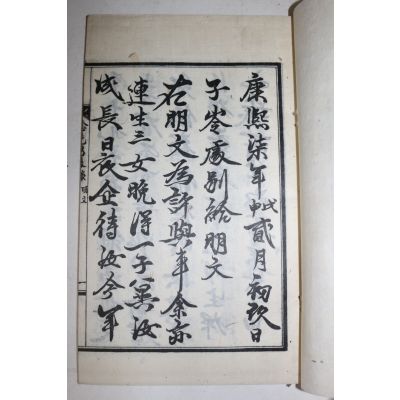 康熙柒年戊申貳月初玖日
子岺處別給明文
右明文為許與事余亦
連生三女晚得一子冀汝
成長日夜企待汝今年